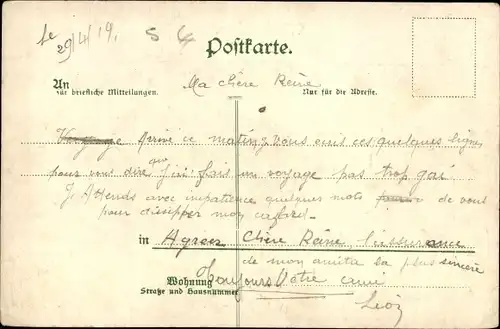 Le
29/4/19.
Postkarte.
An
Ma chère Reine
für briefliche Mitteilungen.
Nur für die Adresse.
Arrivé ce matin, vous ecris ces quelques lignes
pour vous dire que j'ai fais un voyage pas trop gai
J'Attends avec impatience quelques mots de vous
pour dissiper mon cafard.
in Agreez Chère Reine l'assurance
de mon amitié la plus sincère
Wohnung
Toujours Votre ami
Straße und Hausnummer
Léon